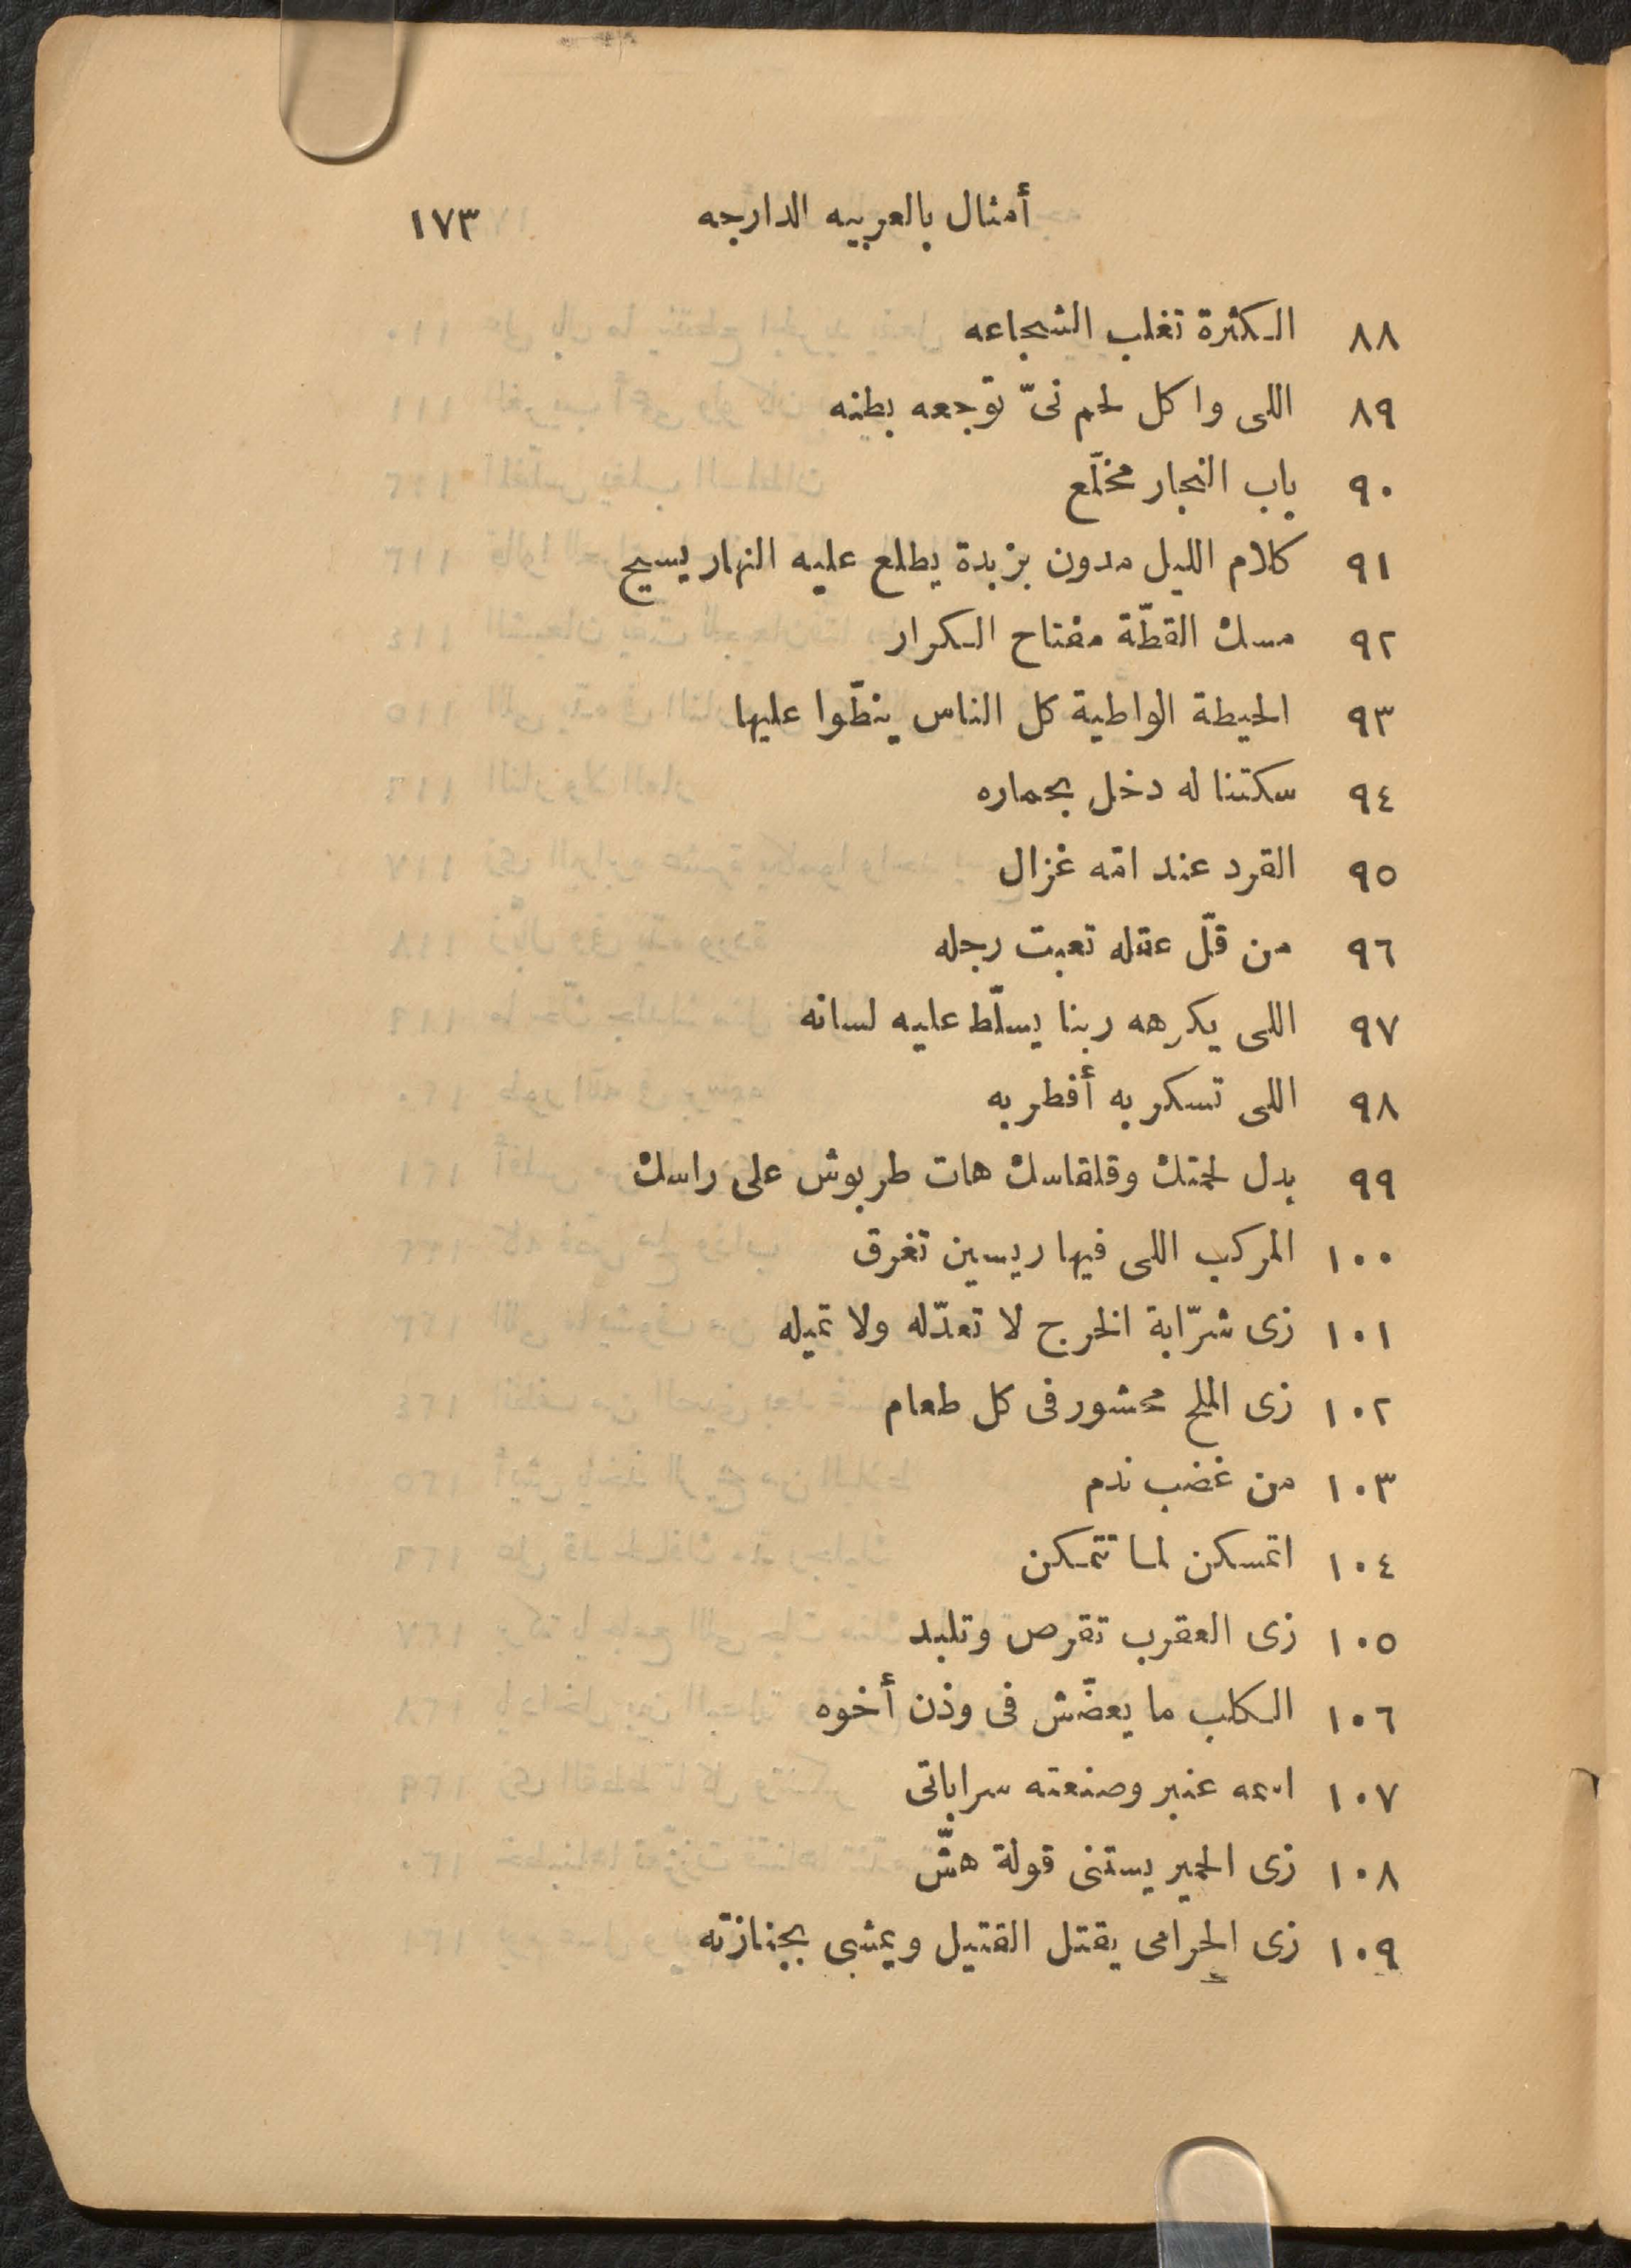 أمثال بالعربيه الدارجه ١٧٣
٨٨ الكثرة تغلب الشجاعه
٨٩ اللى واكل لحم نىّ توجعه بطنه
٩٠ باب النجار مخلّع
٩١ كلام الليل مدون بزبدة يطلع عليه النهار يسيح
٩٢ مسك القطّة مفتاح الكرار
٩٣ الحيطة الواطية كل الناس ينطّوا عليها
٩٤ سكتنا له دخل بحماره
٩٥ القرد عند امّه غزال
٩٦ من قلّ عقله تعبت رجله
٩٧ اللى يكرهه ربنا يسلّط عليه لسانه
٩٨ اللى تسكر به أفطر به
٩٩ بدل لحمتك وقلقاسك هات طربوش على راسك
١٠٠ المركب اللى فيها ريسين تغرق
١٠١ زى شرّابة الخرج لا تعدّله ولا تميله
١٠٢ زى الملح محشور فى كل طعام
١٠٣ من غضب ندم
١٠٤ اتمسكن لما تتمكن
١٠٥ زى العقرب تقرص وتلبد
١٠٦ الكلب ما يعضّش فى وذن أخوه
١٠٧ اسمه عنبر وصنعته سراباتى
١٠٨ زى الحمير يستنى قولة هشّ
١٠٩ زى الحرامى يقتل القتيل ويمشى بجنازته